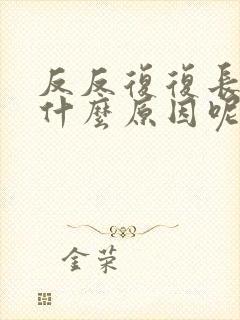 反反復復長
什麼原因呢
金荣